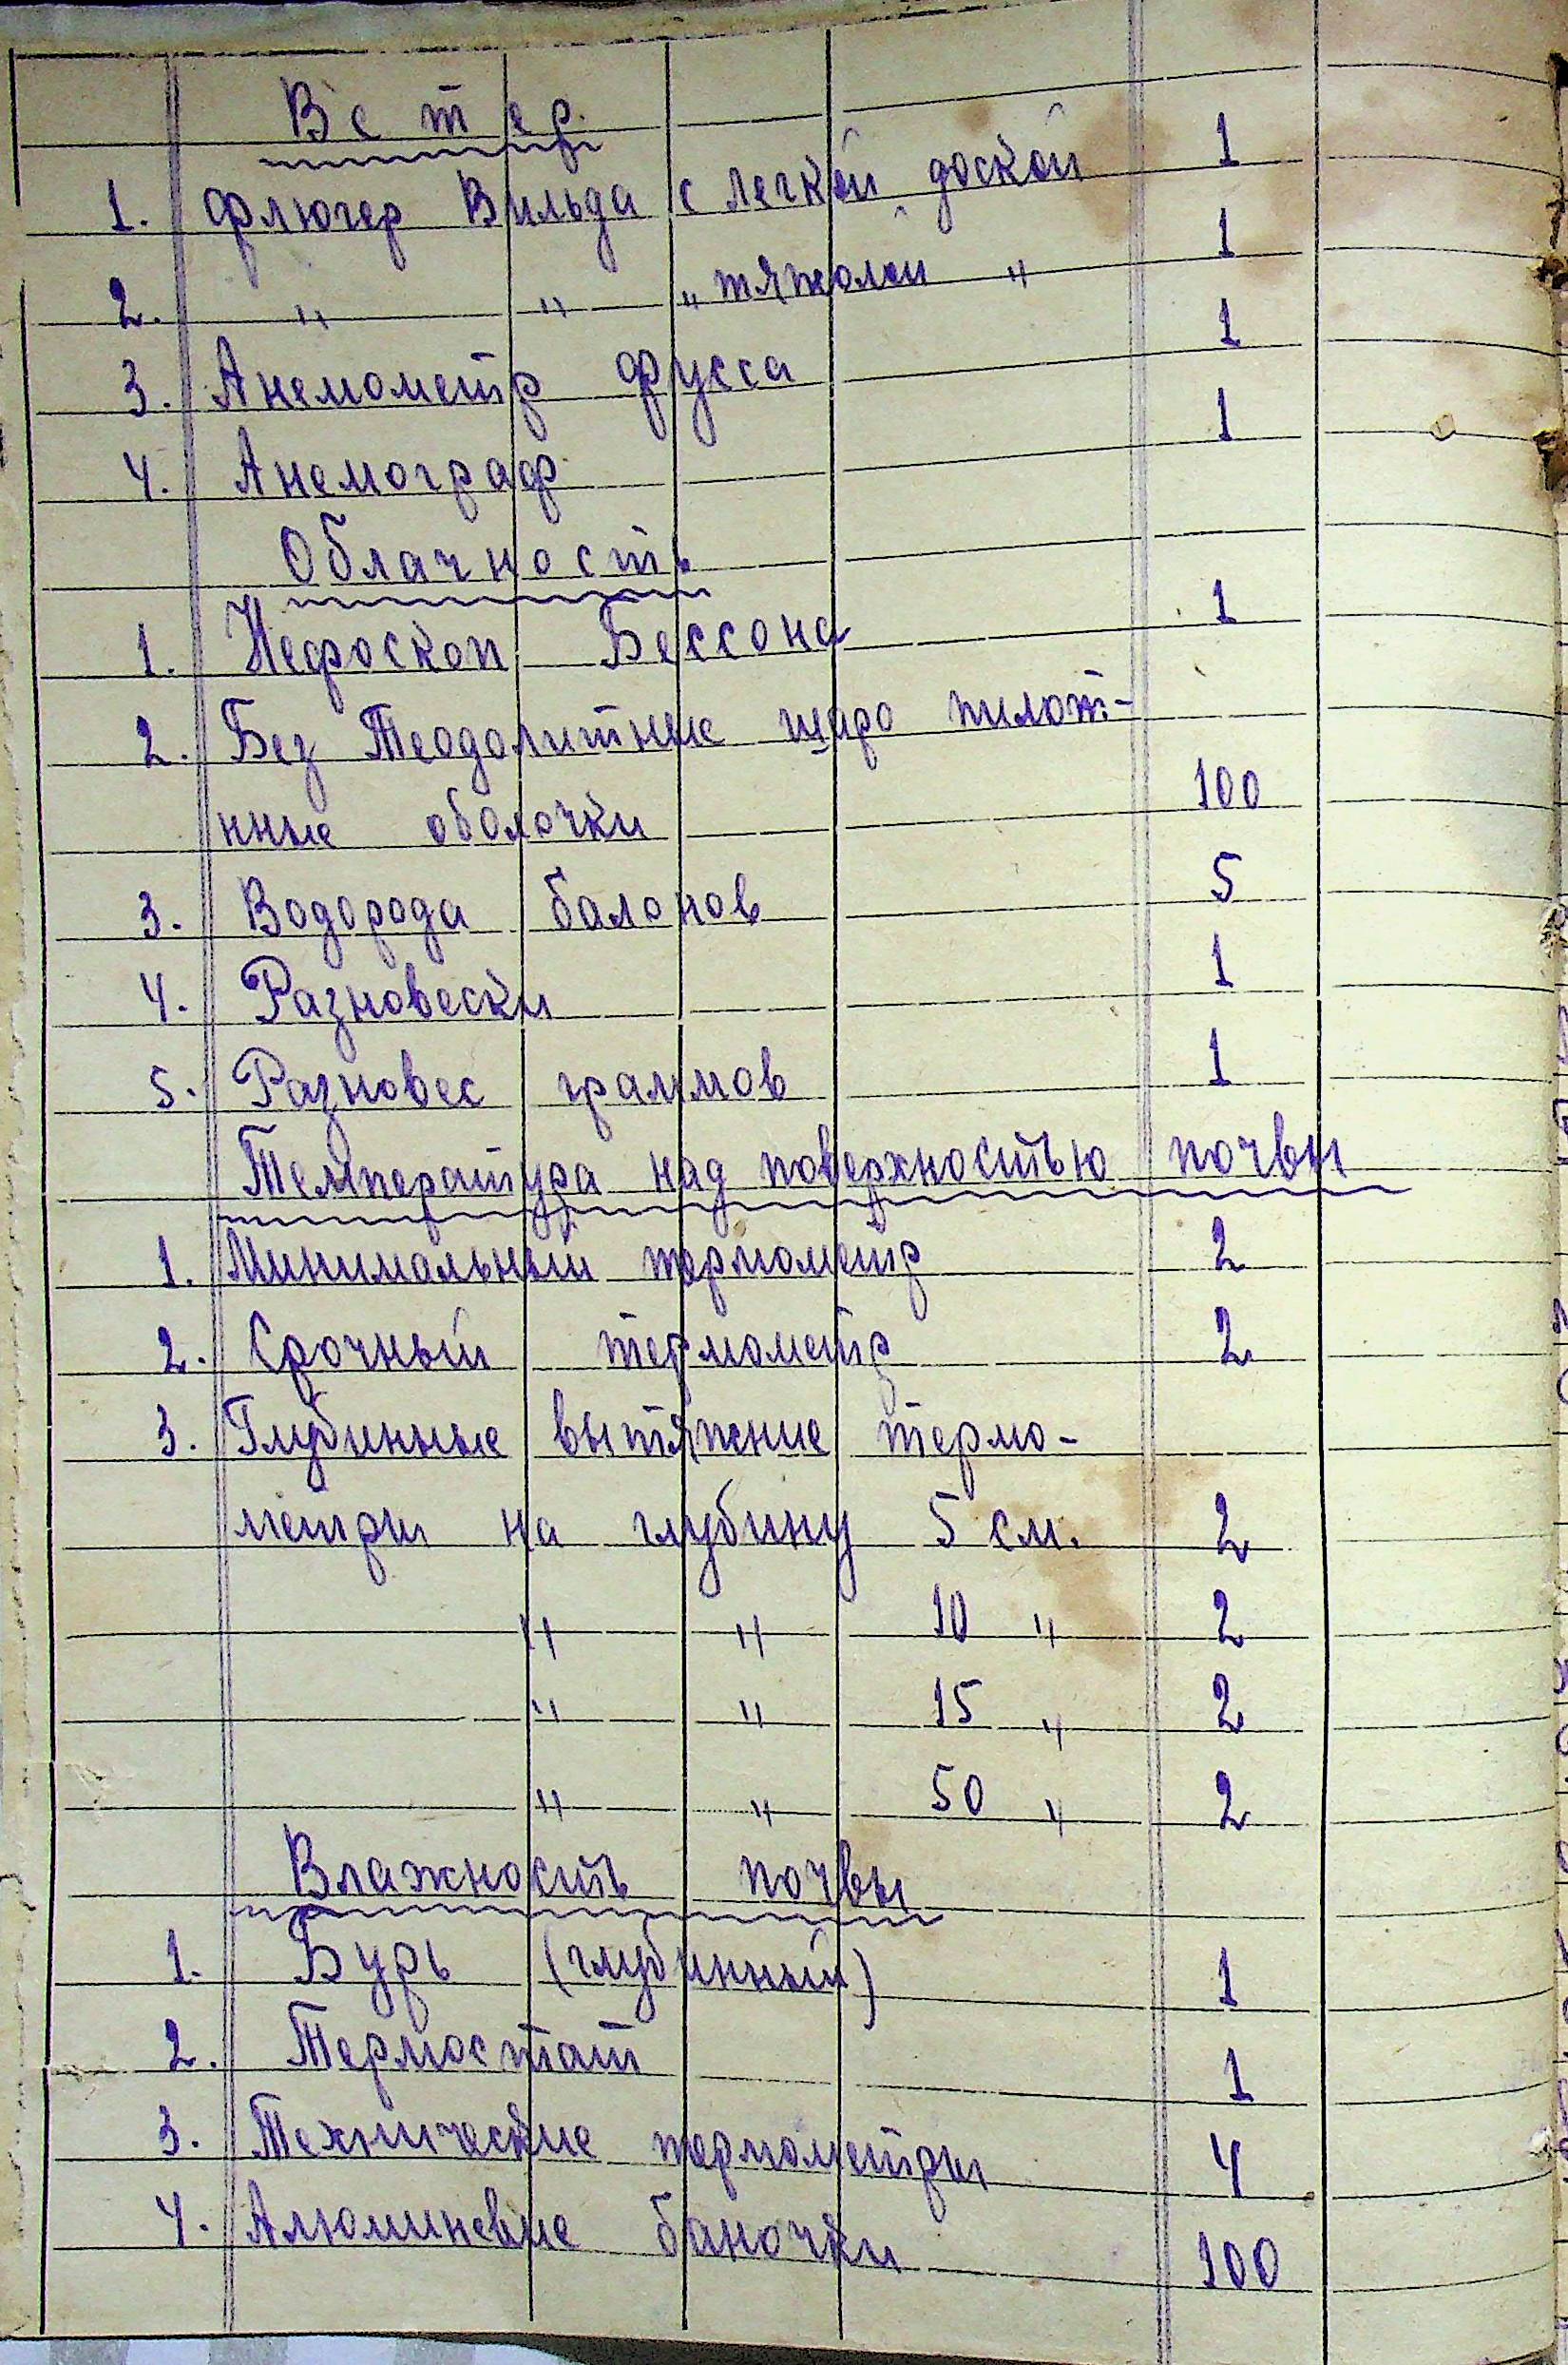 Ветер.
1. Флюгер Вильда с легкой доской 1
2. " " " тяжолой " 1
3. Анемометр Фусса 1
4. Анемограф 1
Облачность
1. Нефоскоп Бессона 1
2. Без Теодолитные шаро пилот-
нные оболочки 100
3. Водорода балонов 5
4. Разновески 1
5. Разновес граммов 1
Температура над поверхностью почвы
1. Минимальный термометр 2
2. Срочный термометр 2
3. Глубинные вытяжние термо-
метры на глубину 5 см. 2
" " 10 " 2
" " 15 " 2
" " 50 " 2
Влажность почвы
1. Бурь (глубинный) 1
2. Термостат 1
3. Технические термометры 4
4. Алюминевые баночки 100